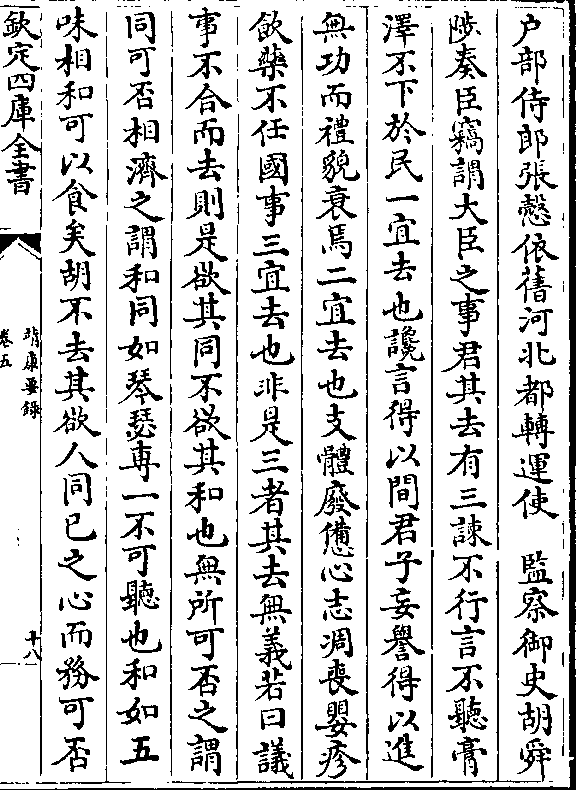 户部侍郎張慤依舊河北都轉運使　監察御史胡舜
陟奏臣竊謂大臣之事君其去有三諫不行言不聽膏
澤不下於民一宜去也讒言得以間君子妄譽得以進
無功而禮貌衰焉二宜去也支體廢憊心志凋喪嬰疹
飲藥不任國事三宜去也非是三者其去無義若曰議
事不合而去則是欲其同不欲其和也無所可否之謂
同可否相濟之謂和同如琴瑟專一不可聽也和如五
味相和可以食矣胡不去其欲人同已之心而務可否
欽定四庫全書
靖康要録
卷五
十八